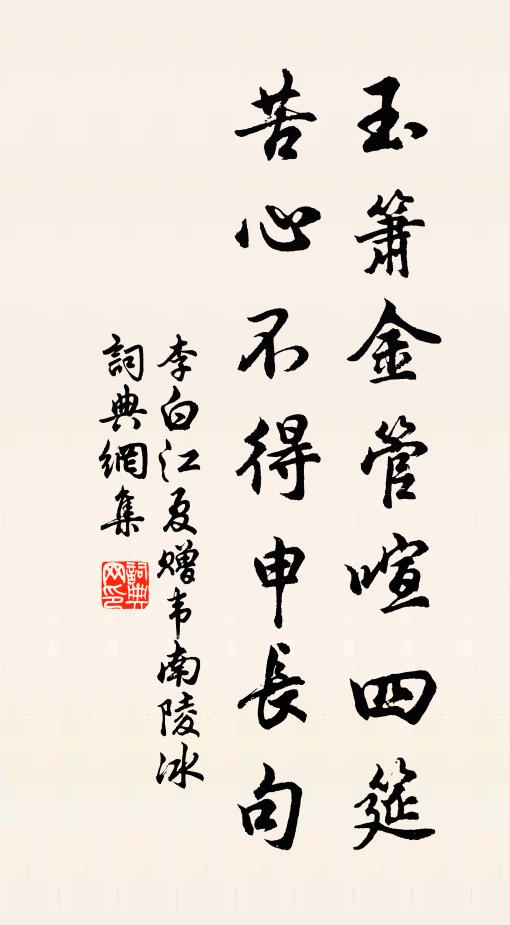 玉簫金管喧四筵
苦心不得申長句
李白江夏赠韦南陵冰
詞典網集
詞典网印